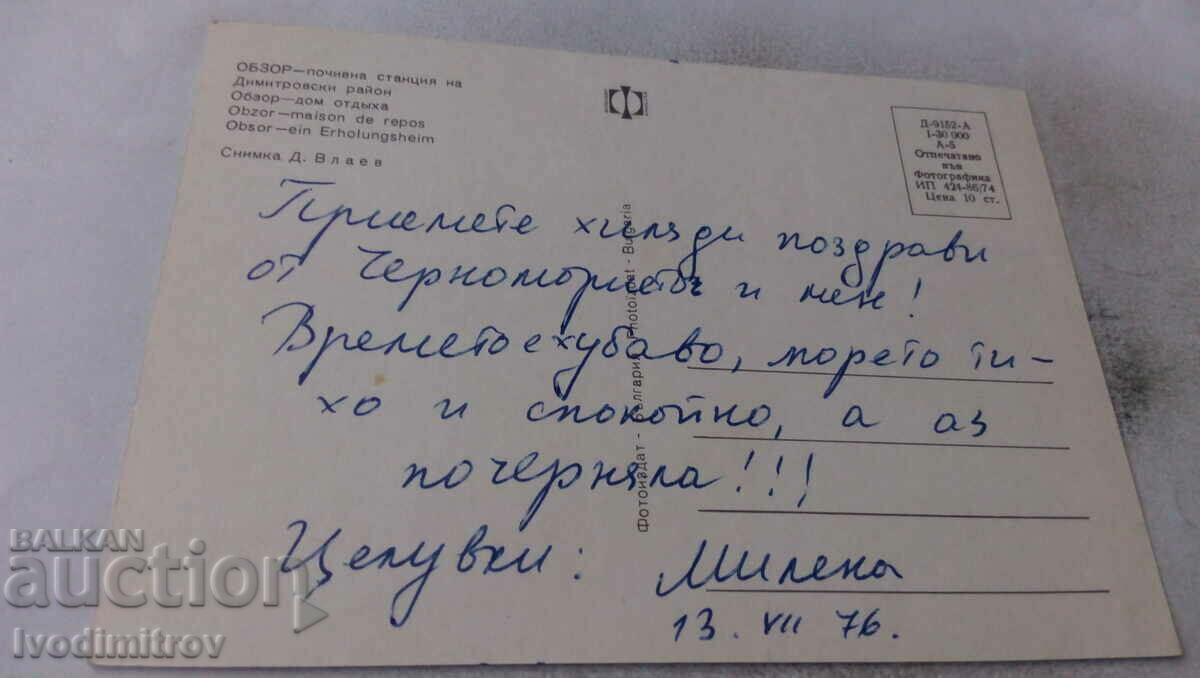 ОБЗОР—почивна станция на
Димитровски район
Обзор—дом отдыха
Obzor—maison de repos
Obsor—ein Erholungsheim
Снимка Д. Влаев
Д-9152-А
I-30 000
А-5
Отпечатано
във
Фотографика
ИП 424-86/74
Цена 10 ст.
Приемете хиляди поздрави
от Черномориетъ и мен!
Времето е хубаво, морето ти-
хо и спокойно, а аз
почерняла!!!
Целувки: Милена
13. VII 76.
Фотоиздат - България, Photoizdat - Bulgaria
BALKAN
auction
Ivodimitrov